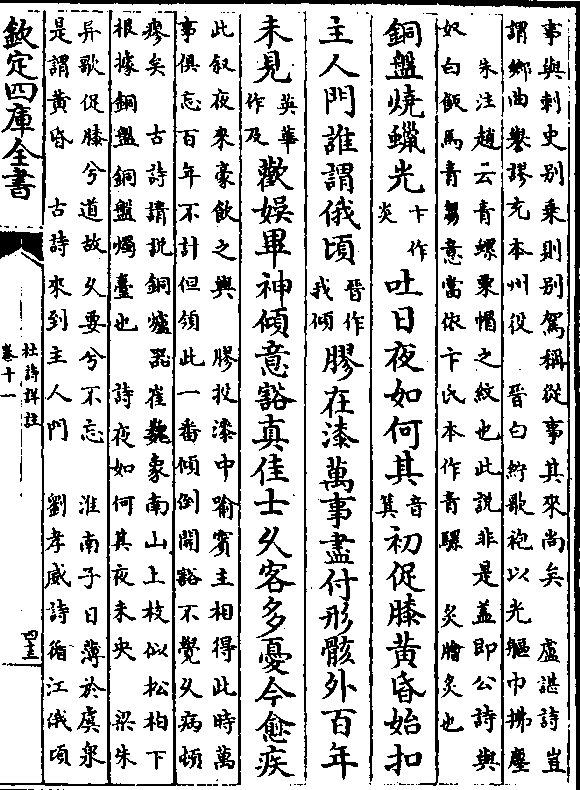 事與刺史别乘則别駕稱從事其來尚矣　盧諶詩豈
謂鄉曲譽謬充本州役　晉白紵歌袍以光軀巾拂塵
朱注趙云青螺粟帽之紋也此説非是蓋即公詩與
奴白飯馬青芻意當依卞氏本作青騾　炙膾炙也
銅盤燒蠟光卞作炎吐日夜如何其音箕初促膝黄昏始扣
主人門誰謂俄頃晉作我傾膠在漆萬事盡付形骸外百年
未見英華作及歡娛畢神傾意豁真佳士久客多憂今愈疾
此叙夜來豪飲之興　膠投漆中喻賓主相得此時萬
事俱忘百年不計但領此一番傾倒開豁不覺久病頓
瘳矣　古詩請説銅爐器崔巍象南山上枝似松柏下
根據銅盤銅盤燭臺也　詩夜如何其夜未央　梁朱
异歌促膝兮道故久要兮不忘　淮南子日薄於虞泉
是謂黄昏　古詩來到主人門　劉孝威詩循江俄頃
欽定四庫全書
杜詩詳註
卷十一